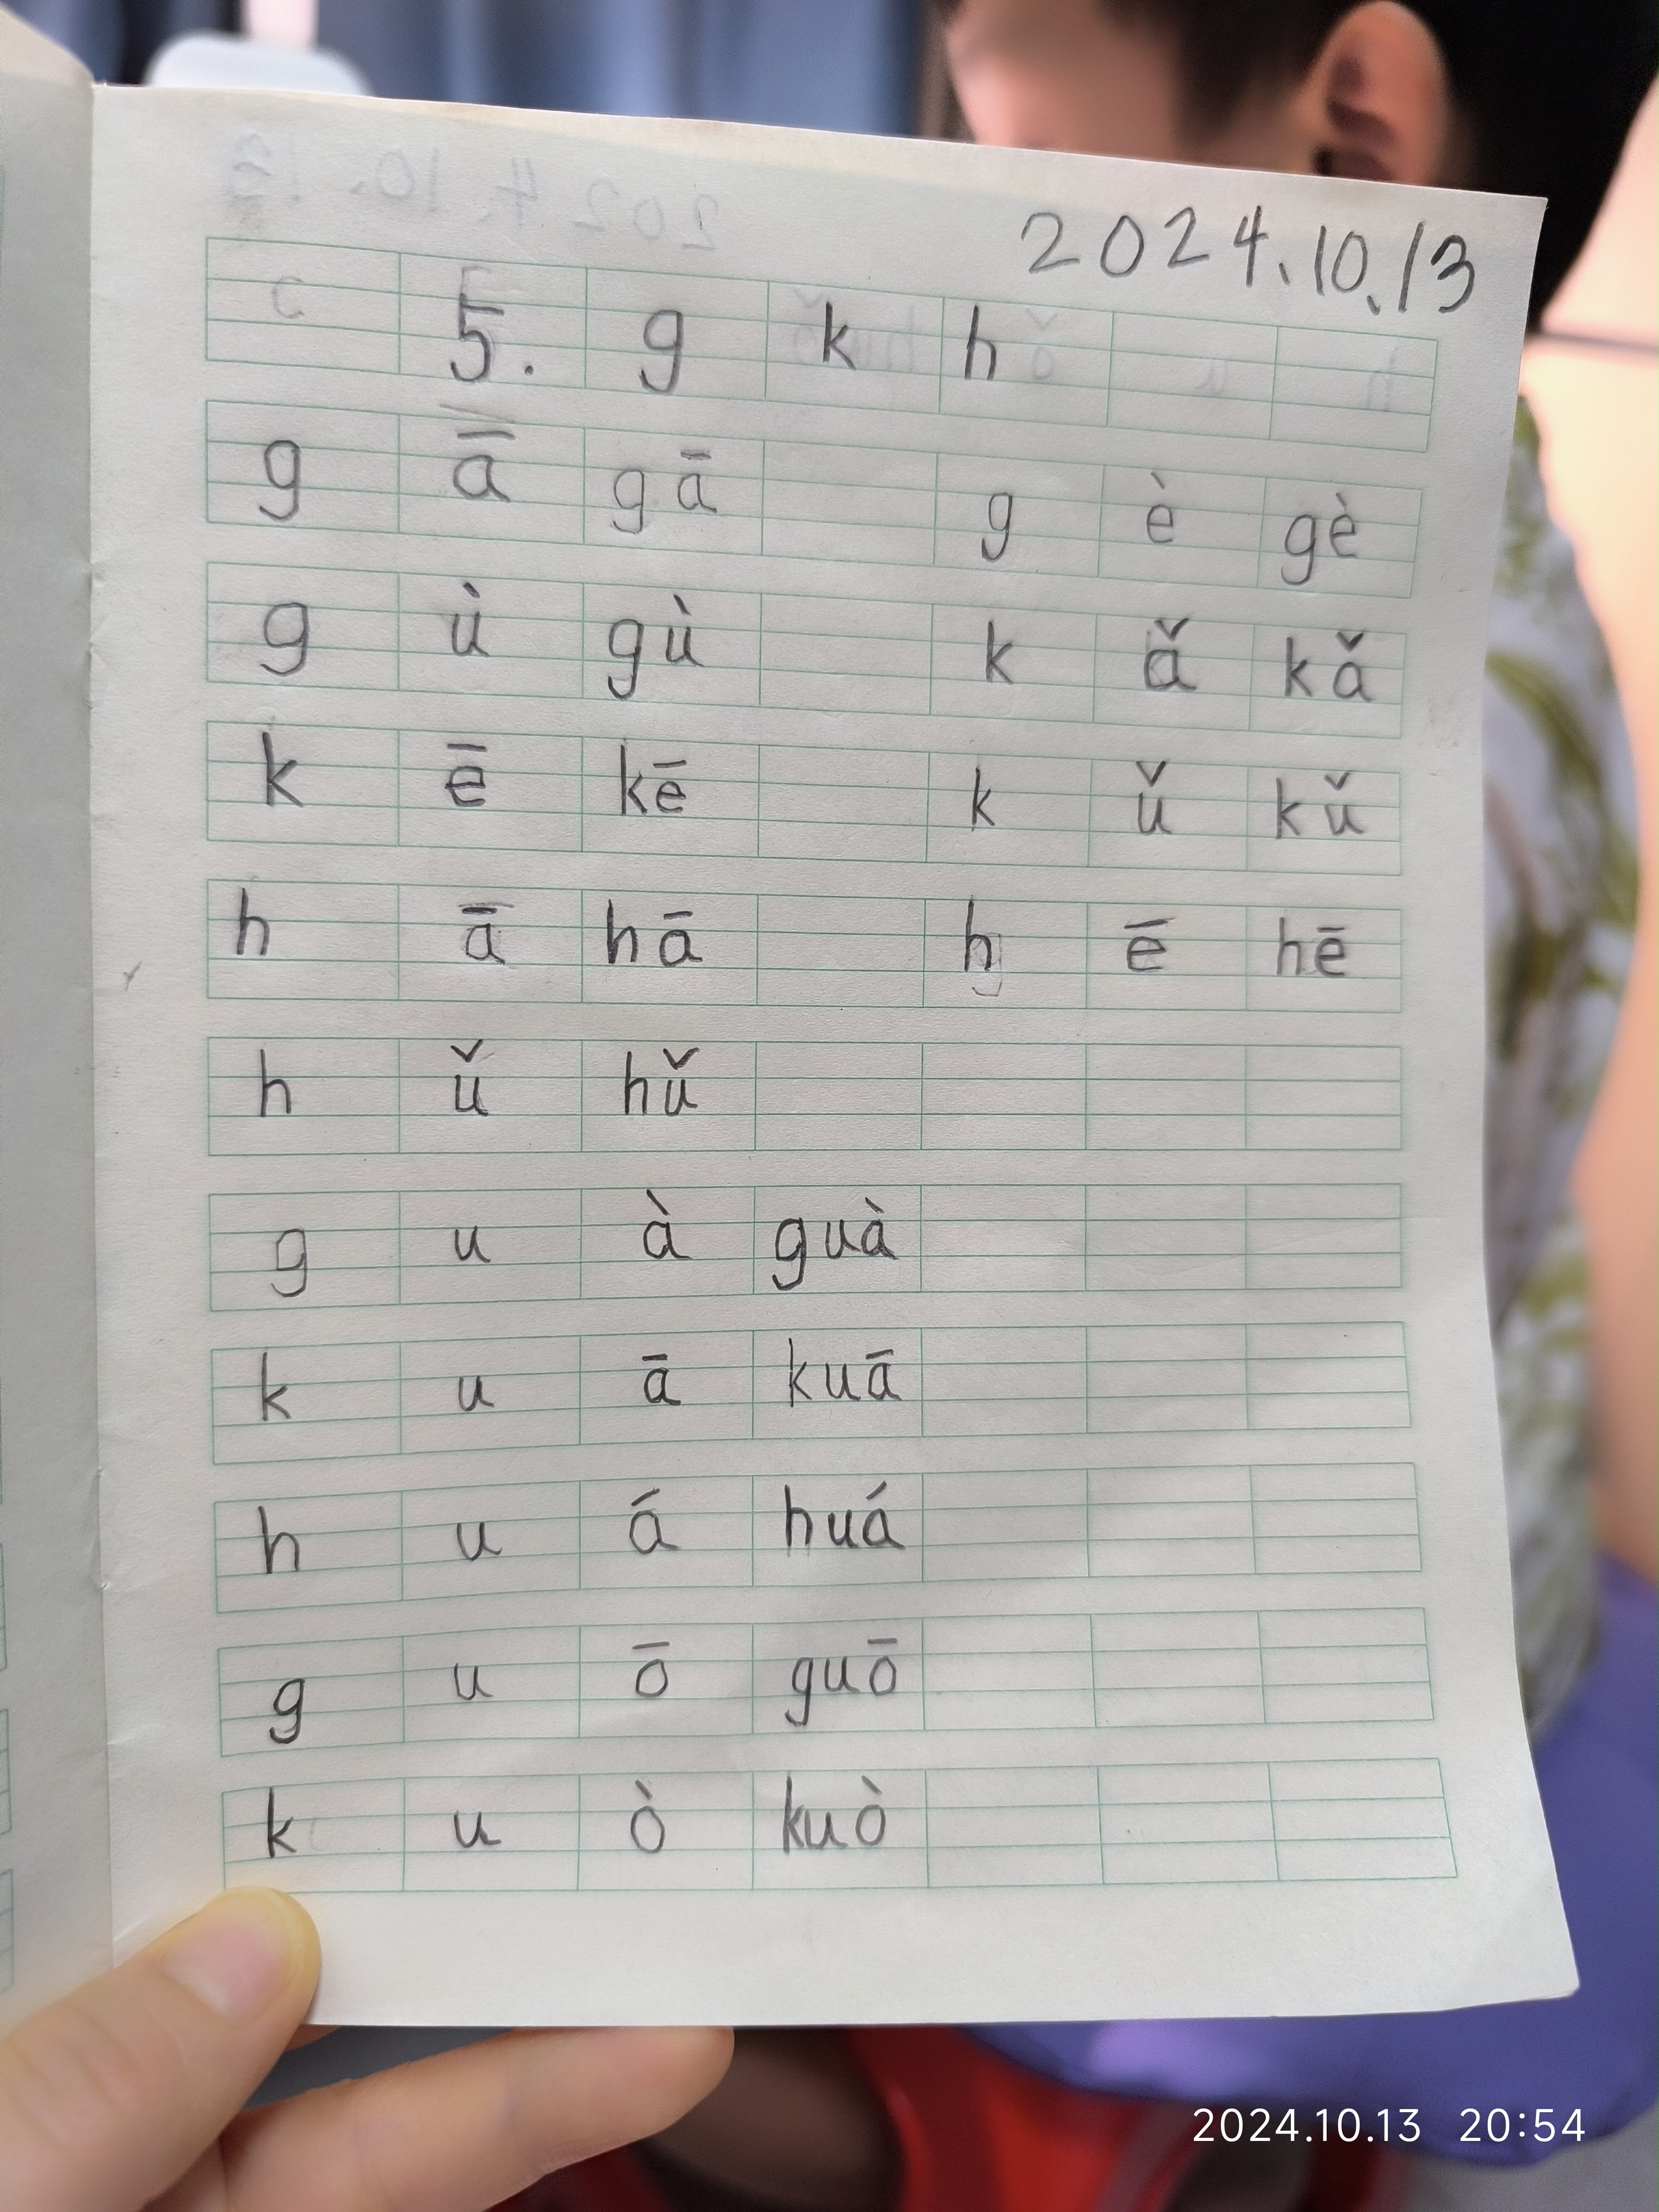 2024.10.13
5. g k h
g ā gā g è gè
g ù gù k ǎ kǎ
k ē kē k ǔ kǔ
h ā hā h ē hē
h ǔ hǔ
g u à guà
k u ā kuā
h u á huá
g u ō guō
k u ò kuò
2024.10.13 20:54